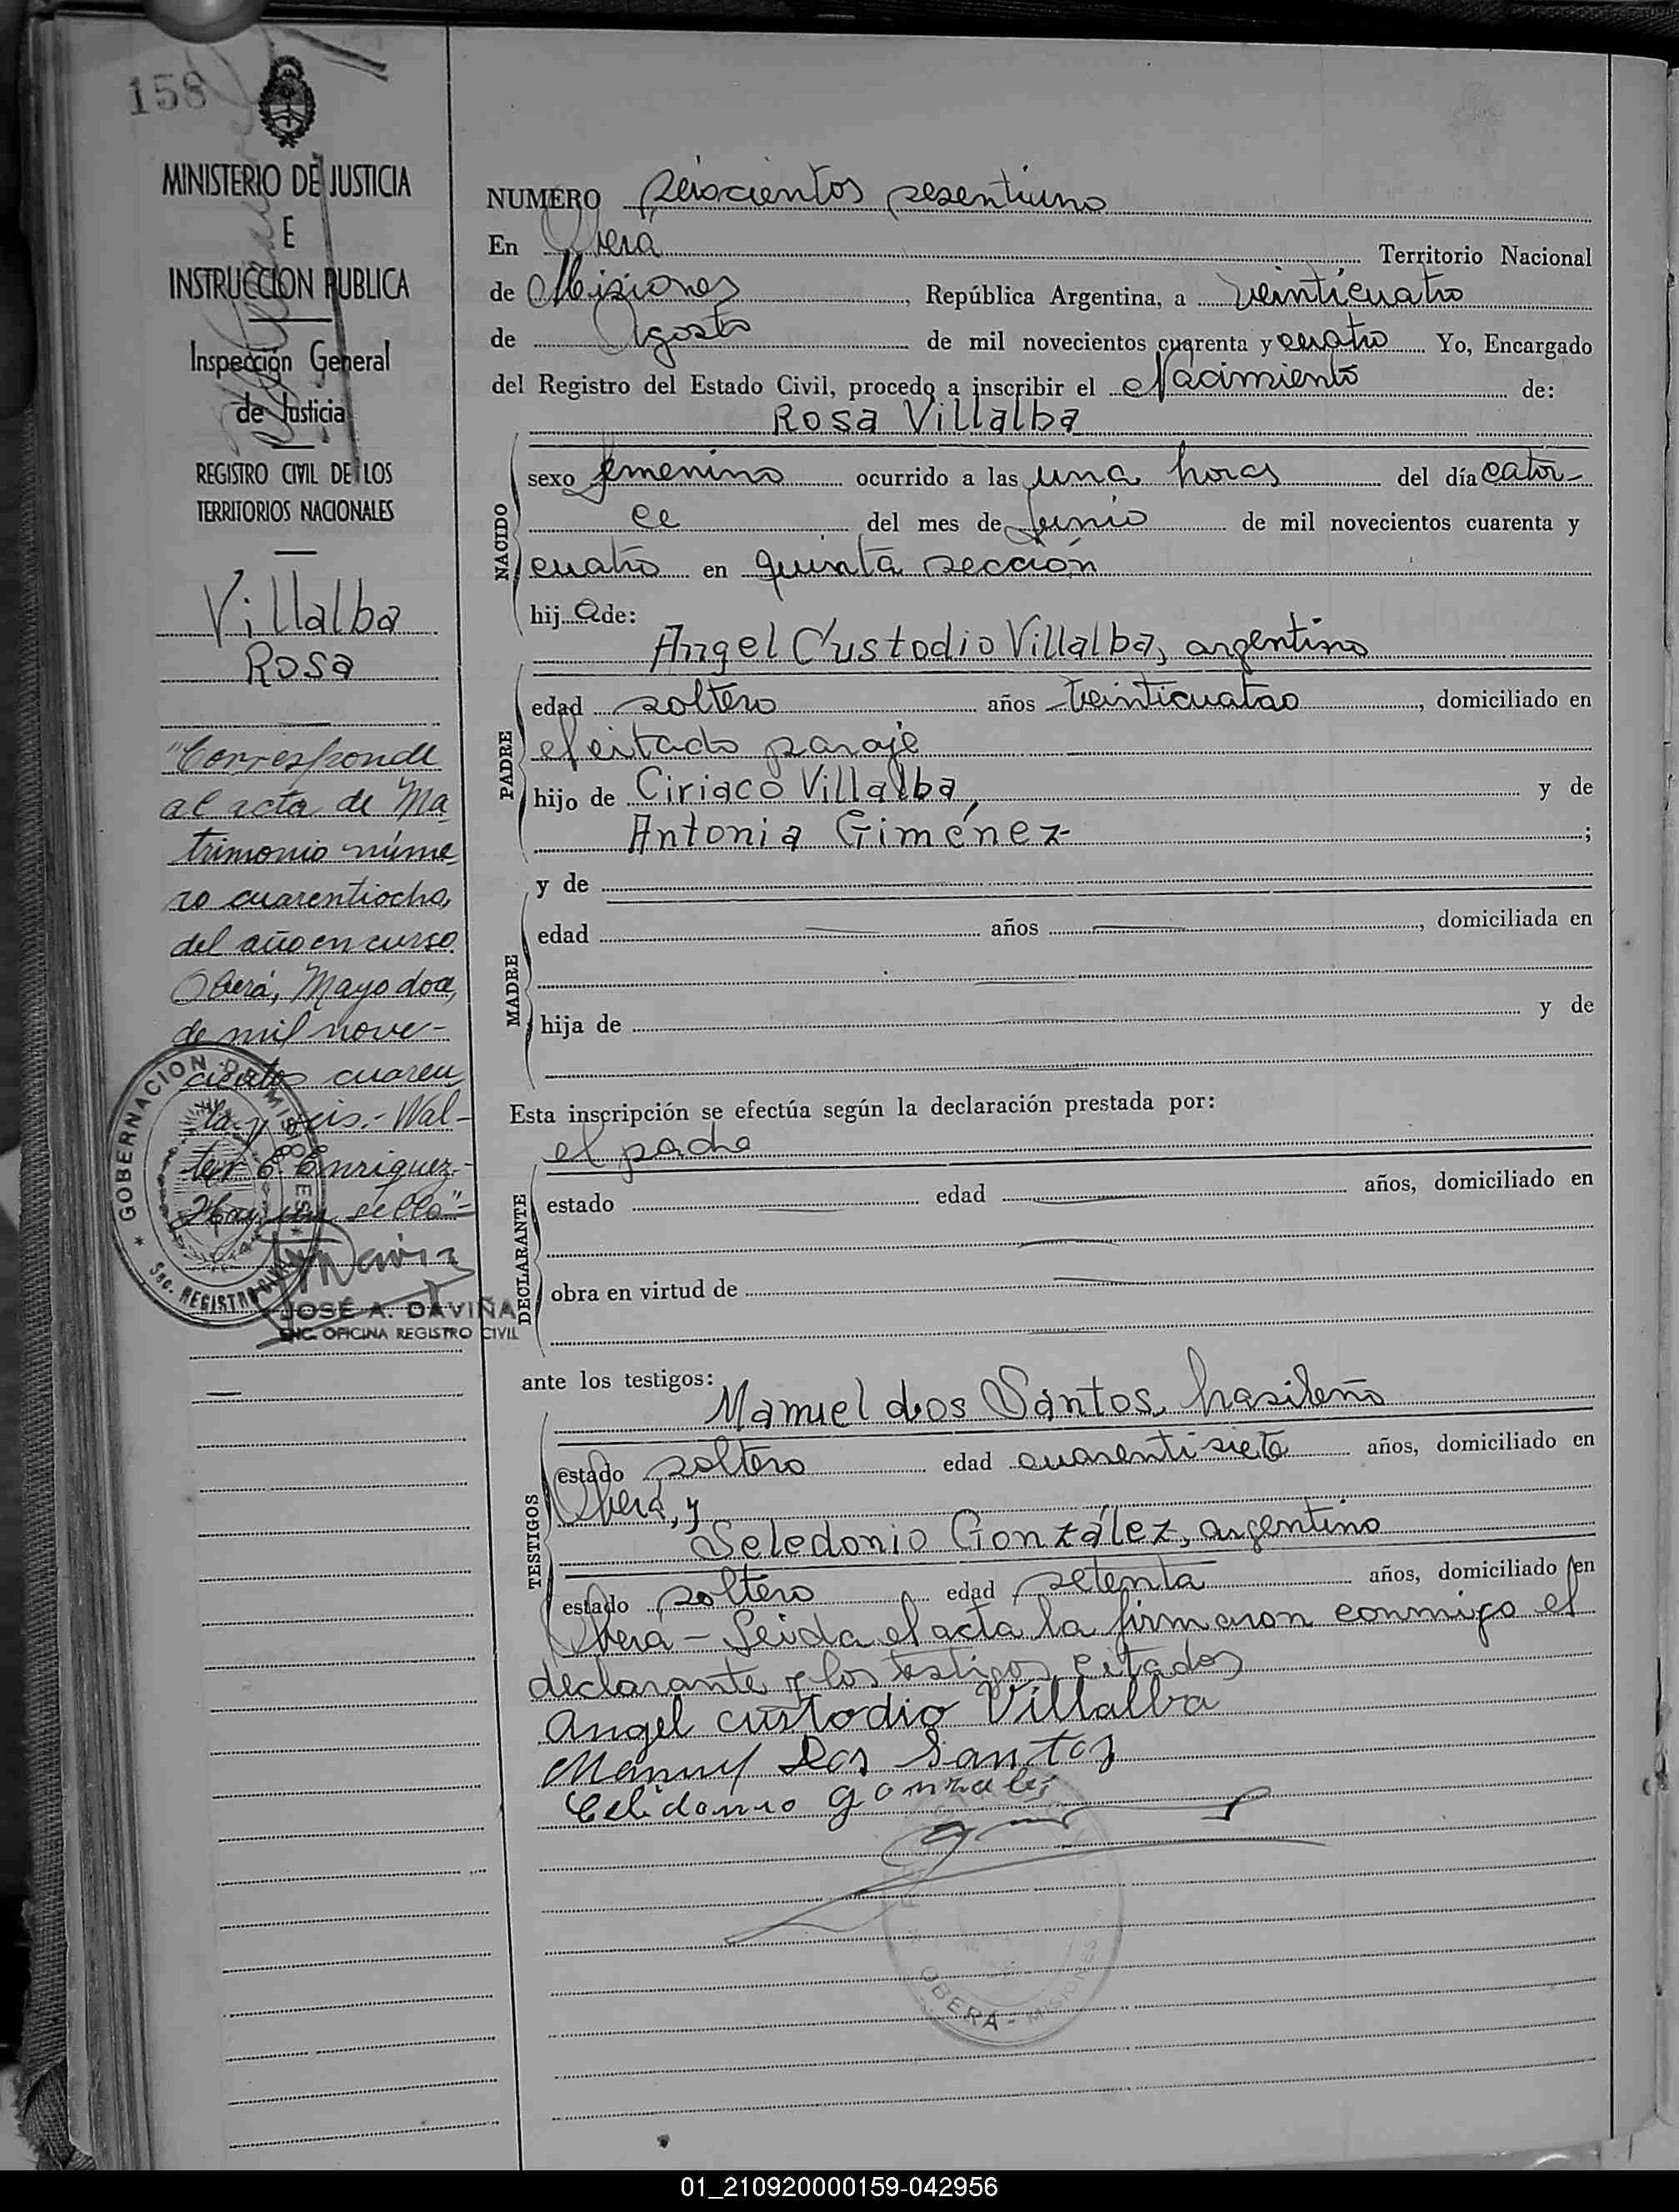 158
MINISTERIO DE JUSTICIA
E
INSTRUCCION PUBLICA
Inspección General
de Justicia
REGISTRO CIVIL DE LOS
TERRITORIOS NACIONALES
Villalba
Rosa
"Corresponde
al acta de Ma
trimonio núme
ro cuarentiocho,
del año en curso.
Oberá, Mayo doce,
de mil nove-
cientos cuaren
ta y seis.- Wal-
ter E. Enriquez.-
Hay un sello"-
GOBERNACION DE MISIONES
REGISTRO CIVIL
JOSÉ A. DAVIÑA
ENC. OFICINA REGISTRO CIVIL
NUMERO seiscientos sesentiuno
En Oberá Territorio Nacional
de Misiones, República Argentina, a veinticuatro
de Agosto de mil novecientos cuarenta y cuatro Yo, Encargado
del Registro del Estado Civil, procedo a inscribir el Nacimiento de:
Rosa Villalba
NACIDO
sexo femenino ocurrido a las una horas del día cator-
ce del mes de junio de mil novecientos cuarenta y
cuatro en quinta sección
hij a de:
Angel Custodio Villalba, argentino
PADRE
edad soltero años veinticuatro, domiciliado en
el citado paraje
hijo de Ciriaco Villalba, y de
Antonia Giménez ;
y de
MADRE
edad años , domiciliada en
hija de y de
Esta inscripción se efectúa según la declaración prestada por:
el padre
DECLARANTE
estado edad años, domiciliado en
obra en virtud de
ante los testigos:
Manuel dos Santos, brasileño
TESTIGOS
estado soltero edad cuarentisiete años, domiciliado en
Oberá, y
Seledonio González, argentino
estado soltero edad setenta años, domiciliado en
Oberá - Leida el acta la firmaron conmigo el
declarante y los testigos citados
Angel custodio Villalba
Manuel Dos Santos
Celidonio gonzales
OBERA - MISIONES
01_210920000159-042956